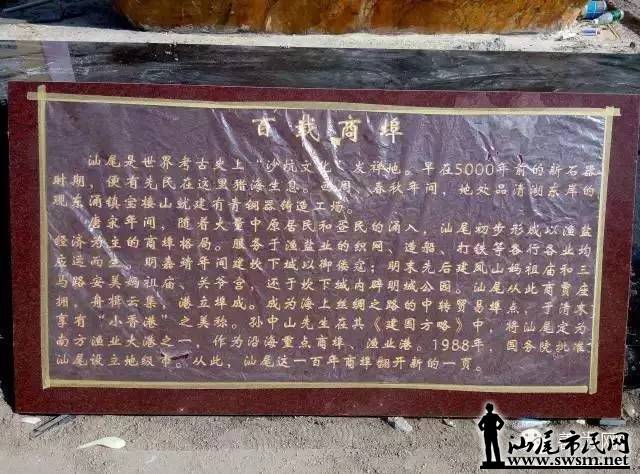 百载商埠
汕尾是世界考古史上“沙坑文化”发祥地。早在5000年前的新石器
时期，便有先民在这里猎海生息。西周、春秋年间，地处品清湖东岸的
观东涌镇宝楼山就建有青铜器铸造工场。
唐宋年间，随着大量中原居民和疍民的涌入，汕尾初步形成以渔盐
经济为主的商埠格局。服务于渔盐业的织网、造船、打铁等各行各业均
应运而生。明嘉靖年间建坎下城以御倭寇；明末先后建凤山妈祖庙和三
马路安美妈祖庙、关爷宫，还于坎下城内辟明城公园。汕尾从此商贾
拥，舟楫云集，港立埠成。成为海上丝绸之路的中转贸易埠点，于清末
享有“小香港”之美称。孙中山先生在其《建国方略》中，将汕尾定为
南方渔业大港之一，作为沿海重点商埠、渔业港。1988年，国务院批准
汕尾设立地级市。从此，汕尾这一百年商埠翻开新的一頁。
汕尾市民网
www.swsm.net